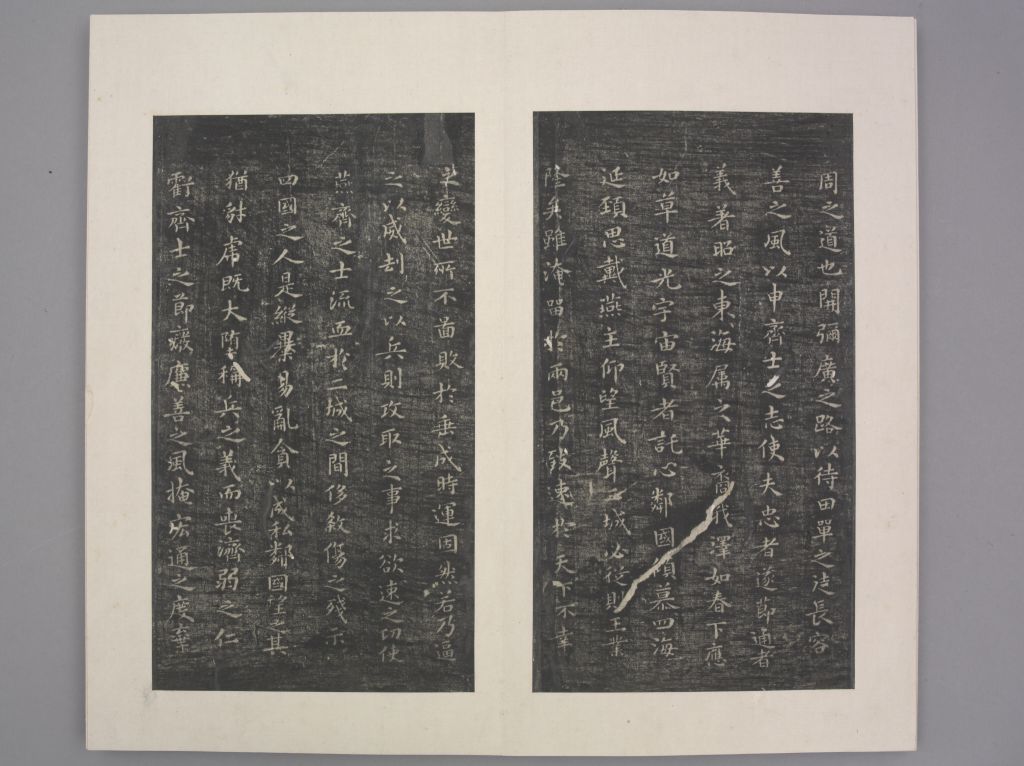 周之道也開彌廣之路以待田單之徒長容
善之風以申齊士之志使夫忠者遂節通者
義著昭之東海属之華裔我澤如春下應
如草道光宇宙賢者託心鄰國傾慕四海
延頸思戴燕主仰望風聲二城必從則王業
隆矣雖淹留於兩邑乃致速於天下不幸
之變世所不啚敗於垂成時運固然若乃逼
之以威劫之以兵則攻取之事求欲速之功使
燕齊之士流血於二城之間侈煞傷之殘示
四國之人是縱暴易亂貪以成私鄰國望之其
猶豺虎既大墮稱兵之義而喪濟弱之仁
虧齊士之節癈廉善之風掩宏通之度棄